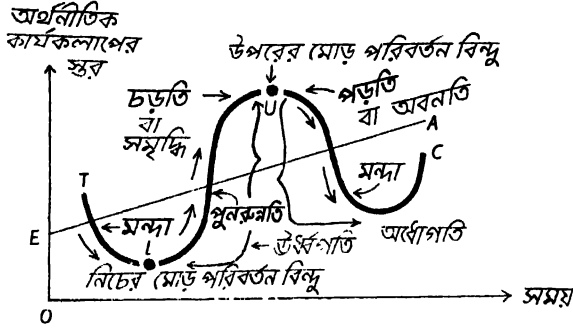 অর্থনীতিক
কার্যকলাপের
স্তর
উপরের মোড় পরিবর্তন বিন্দু
চড়তি
বা
সমৃদ্ধি
U
পড়তি
বা অবনতি
A
C
T
মন্দা
মন্দা
পুনরুন্নতি
E
ঊর্ধ্বগতি
অধোগতি
নিচের মোড় পরিবর্তন বিন্দু
O
সময়